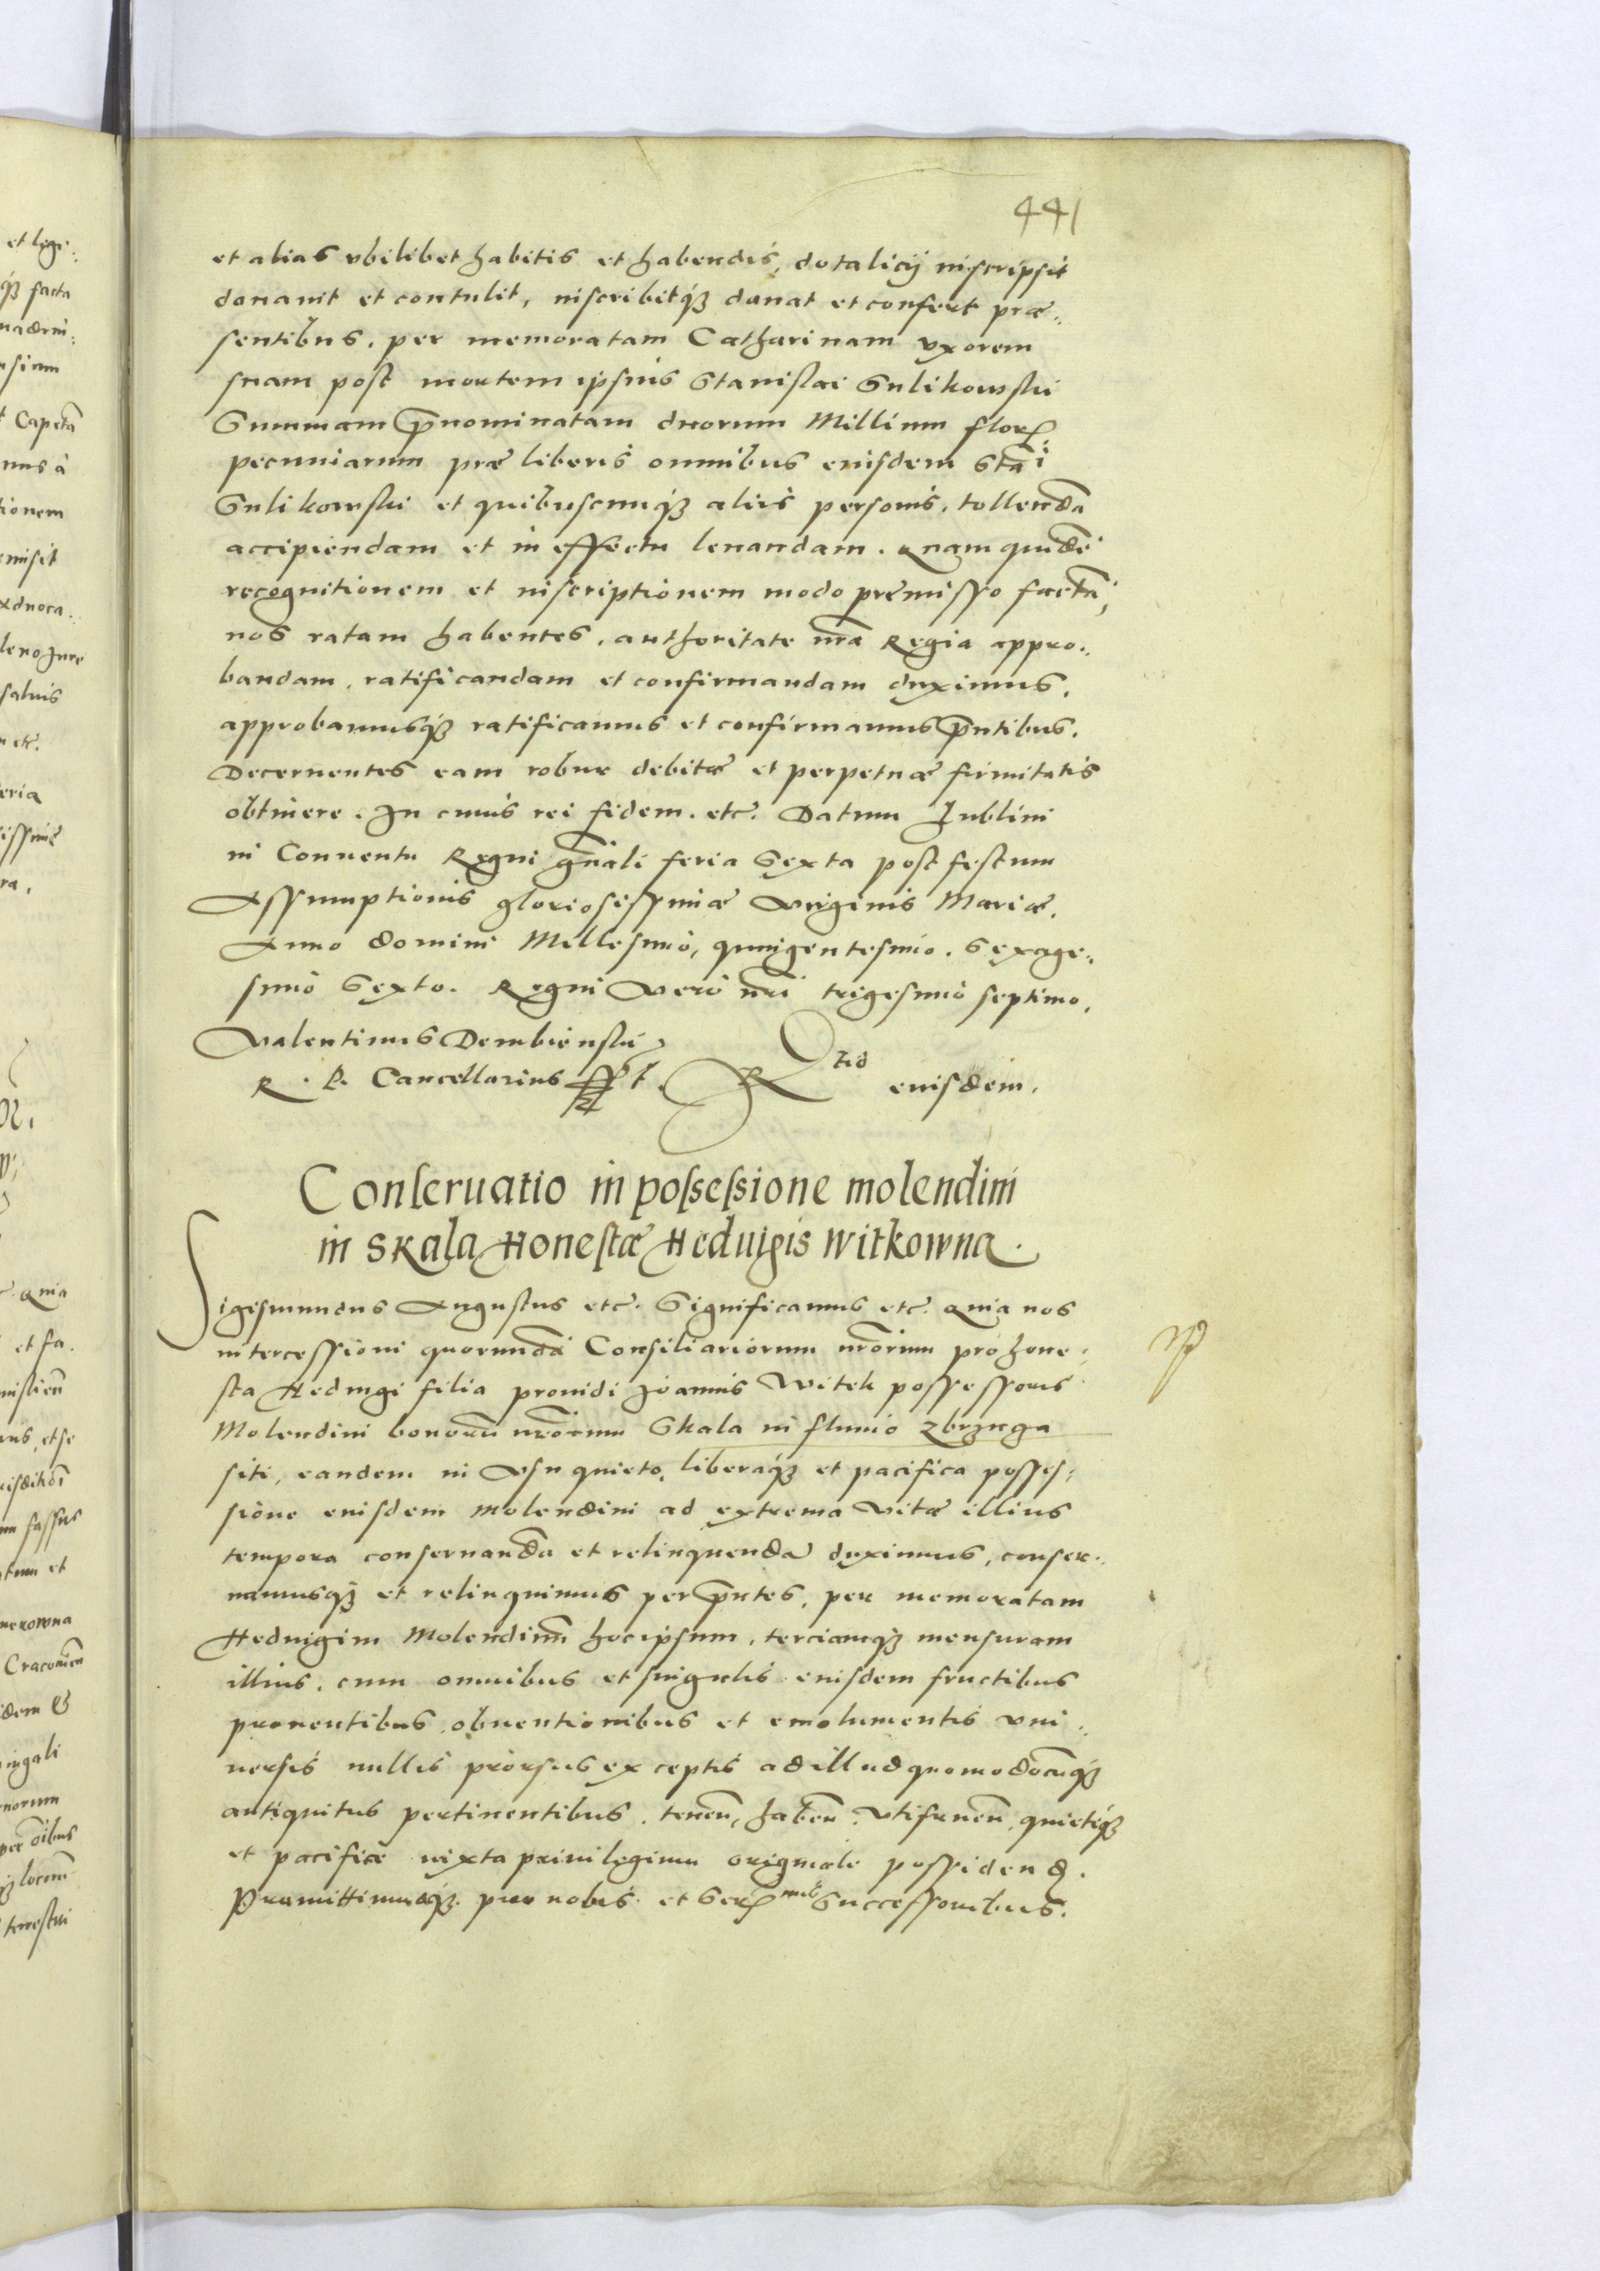 441
et alias vbilibet habitis et habendis, dotalicij inscripsit
donauit et contulit, inscribitq3 donat et confert præ:
sentibus. per memoratam Catharinam vxorem
suam post mortem ipsius Stanislai Sulikowski
Summam p̄nominatam duorum Millium flor.
pecuniarum præ liberis omnibus eiusdem Stāi
Sulikowski et quibuscunq3 aliis personis. tollendā
accipiendam et in effectu leuandam. Quam quidē
recognitionem et inscriptionem modo præmisso factā,
nos ratam habentes, authoritate nr̄a Regia appro:
bandam, ratificandam et confirmandam duximus,
approbamusq3 ratificamus et confirmamus p̄ntibus.
Decernentes eam robur debitæ et perpetuæ firmitatis
obtinere. In cuius rei fidem. etc. Datum Lublini
in Conuentu Regni gn̄ali feria Sexta post festum
Assumptionis gloriosissimæ Virginis Mariæ.
Anno domini Millesimo, quingentesimo. Sexage:
simo Sexto. Regni vero nr̄i trigesimo septimo.
Valentinus Dembienski
R. P. Cancellarius sspt. R<sup>tio</sup> eiusdem.
Conseruatio in possessione molendini
in Skala Honestæ Heduigis Witkowna.
Sigismundus Augustus etc. Significamus etc. Quia nos
intercessioni quorundā Consiliariorum nr̄orum pro hone:
sta Heduigi filia prouidi Joannis Witek possessoris
Molendini bonorū nr̄orum Skala in fluuio Zbrzuga
siti, eandem in vsu quieto, liberaq3 et pacifica posses:
sione eiusdem molendini ad extrema vitæ illius
tempora conseruandā et relinquendā duximus, conser:
uamusq3 et relinquimus per p̄ntes, per memoratam
Heduigim Molendinū hoc ipsum, terciamq3 mensuram
illius, cum omnibus et singulis eiusdem fructibus
prouentibus, obuentionibus et emolumentis vni:
uersis nullis prorsus exceptis ad illud quomodocūq3
antiquitus pertinentibus. tenen̄, haben̄. vtifruen̄, quieteq3
et pacifice iuxta priuilegium originale possidend.
Promittimusq3. pro nobis et Ser<sup>mis</sup> Successoribus.